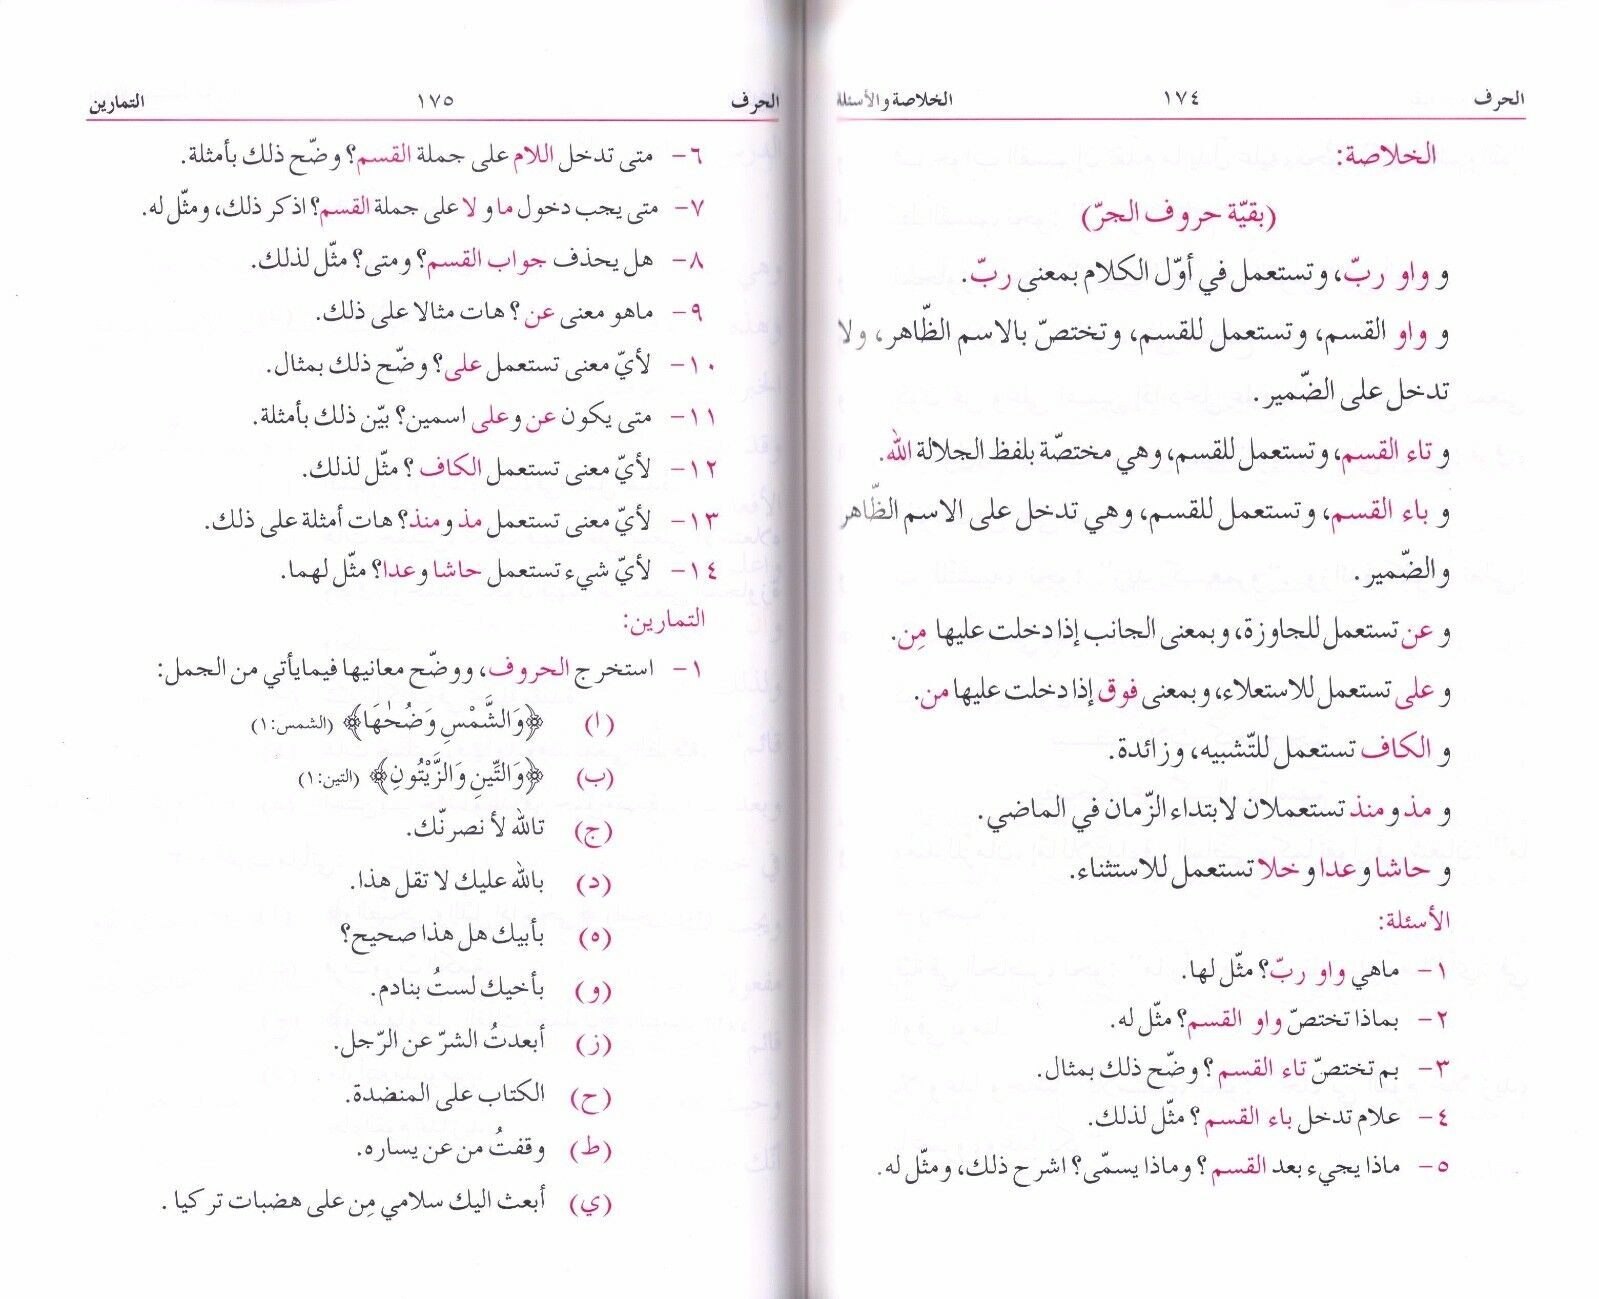 الحرف ١٧٤ الخلاصة والأسئلة
الخلاصة:
(بقيّة حروف الجرّ)
و واو ربّ، وتستعمل في أوّل الكلام بمعنى ربّ.
و واو القسم، وتستعمل للقسم، وتختصّ بالاسم الظّاهر، ولا
تدخل على الضّمير.
و تاء القسم، وتستعمل للقسم، وهي مختصّة بلفظ الجلالة الله.
و باء القسم، وتستعمل للقسم، وهي تدخل على الاسم الظّاهر
والضّمير.
و عن تستعمل للجاوزة، وبمعنى الجانب إذا دخلت عليها مِن.
و على تستعمل للاستعلاء، وبمعنى فوق إذا دخلت عليها من.
و الكاف تستعمل للتّشبيه، وزائدة.
و مذ ومنذ تستعملان لابتداء الزّمان في الماضي.
و حاشا وعدا وخلا تستعمل للاستثناء.
الأسئلة:
١- ماهي واو ربّ؟ مثّل لها.
٢- بماذا تختصّ واو القسم؟ مثّل له.
٣- بم تختصّ تاء القسم؟ وضّح ذلك بمثال.
٤- علام تدخل باء القسم؟ مثّل لذلك.
٥- ماذا يجيء بعد القسم؟ وماذا يسمّى؟ اشرح ذلك، ومثّل له.
الحرف ١٧٥ التمارين
٦- متى تدخل اللام على جملة القسم؟ وضّح ذلك بأمثلة.
٧- متى يجب دخول ما و لا على جملة القسم؟ اذكر ذلك، ومثّل له.
٨- هل يحذف جواب القسم؟ ومتى؟ مثّل لذلك.
٩- ماهو معنى عن؟ هات مثالا على ذلك.
١٠- لأيّ معنى تستعمل على؟ وضّح ذلك بمثال.
١١- متى يكون عن وعلى اسمين؟ بيّن ذلك بأمثلة.
١٢- لأيّ معنى تستعمل الكاف؟ مثّل لذلك.
١٣- لأيّ معنى تستعمل مذ ومنذ؟ هات أمثلة على ذلك.
١٤- لأيّ شيء تستعمل حاشا وعدا؟ مثّل لهما.
التمارين:
١- استخرج الحروف، ووضّح معانيها فيمايأتي من الجمل:
(ا) ﴿وَالشَّمْسِ وَضُحٰهَا﴾ (الشمس:١)
(ب) ﴿وَالتِّينِ وَالزَّيْتُونِ﴾ (التين:١)
(ج) تالله لأنصرنّك.
(د) بالله عليك لا تقل هذا.
(ه) بأبيك هل هذا صحيح؟
(و) بأخيك لستُ بنادم.
(ز) أبعدتُ الشرّ عن الرّجل.
(ح) الكتاب على المنضدة.
(ط) وقفتُ من عن يساره.
(ي) أبعث اليك سلامي مِن على هضبات تركيا.